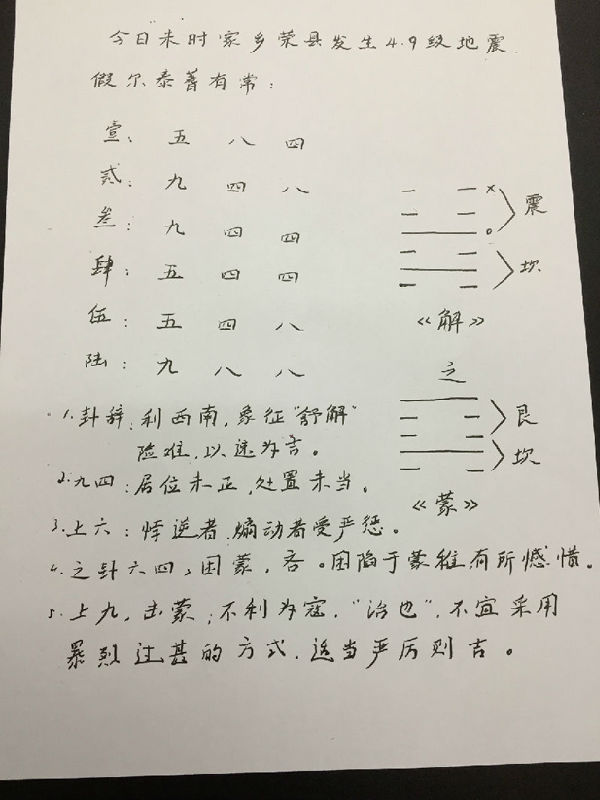 今日未时家乡荣县发生4.9级地震
假尔泰蓍有常:
壹: 五 八 四
贰: 九 四 八
叁: 九 四 四
肆: 五 四 四
伍: 五 四 八
陆: 九 八 八
x
震
o
坎
《解》
之
艮
坎
《蒙》
1.卦辞:利西南,象征"舒解"
险难,以速为吉。
2.九四:居位未正,处置未当。
3.上六:悖逆者、煽动者受严惩。
4.之卦六四:困蒙,吝。困陷于蒙稚有所憾惜。
5.上九,击蒙;不利为寇,"治也",不宜采用
暴烈过甚的方式,适当严厉则吉。